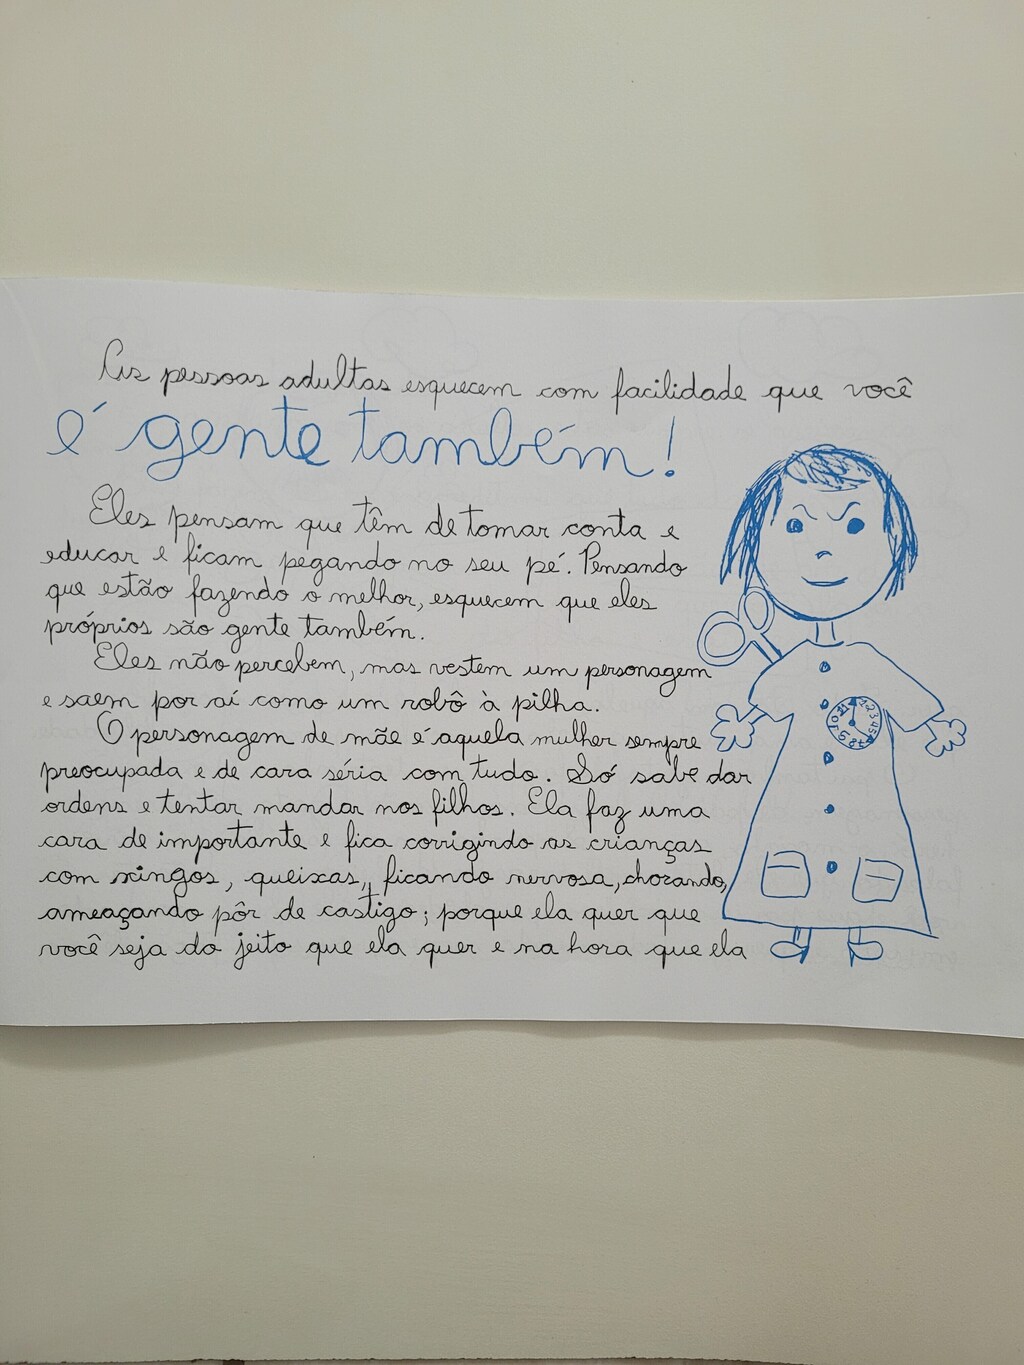 As pessoas adultas esquecem com facilidade que você
é gente também!
Eles pensam que têm de tomar conta e
educar e ficam pegando no seu pé. Pensando
que estão fazendo o melhor, esquecem que eles
próprios são gente também.
Eles não percebem, mas vestem um personagem
e saem por aí como um robô à pilha.
O personagem de mãe é aquela mulher sempre
preocupada e de cara séria com tudo. Só sabe dar
ordens e tentar mandar nos filhos. Ela faz uma
cara de importante e fica corrigindo as crianças
com xingos, queixas, ficando nervosa, chorando,
ameaçando pôr de castigo; porque ela quer que
você seja do jeito que ela quer e na hora que ela